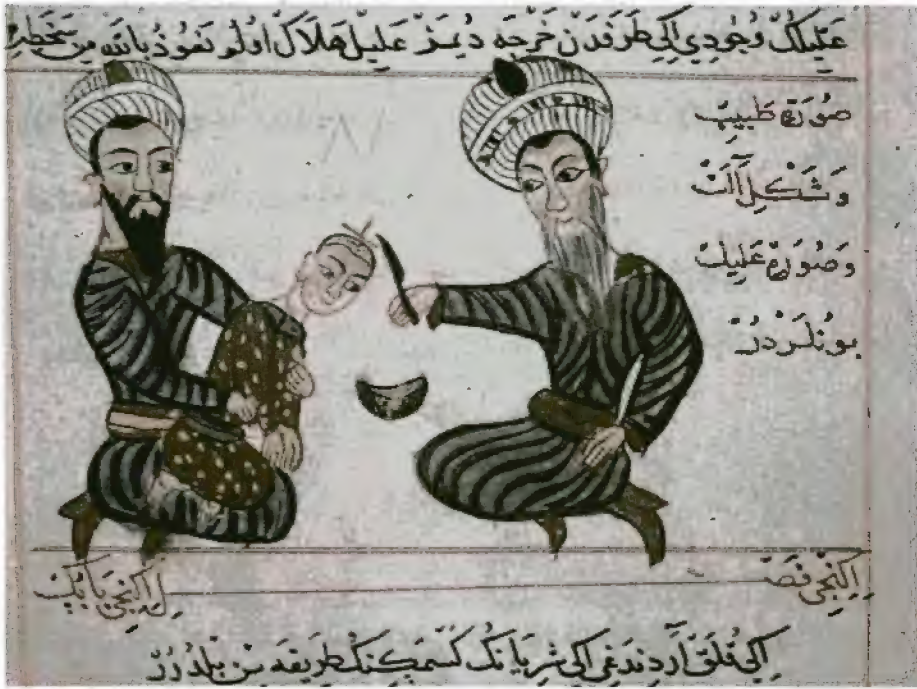 عَليلُكْ وُجُودِي اِكِي طَرَفدَنْ خَرْجَه دُيمَزْ عَليل هَلَاكْ اُولُو نَعُوذُ بِاللّٰهِ مِنْ سَخَطِهِ
صُورَةِ طَبِيبْ
وَشَكْلِ آلَتْ
وَصُورَةِ عَليلْ
بُونْلَرْدُرْ
اِكِنْجِي فَصْل
اِكِنْجِي بَابِكْ
اِكِي قُلَقْ آرْدِنْدَغِي اِكِي شِرْيَانِكْ كَسْمَكِنِكْ طَرِيقَه سِنْ بِلْدُرُرْ